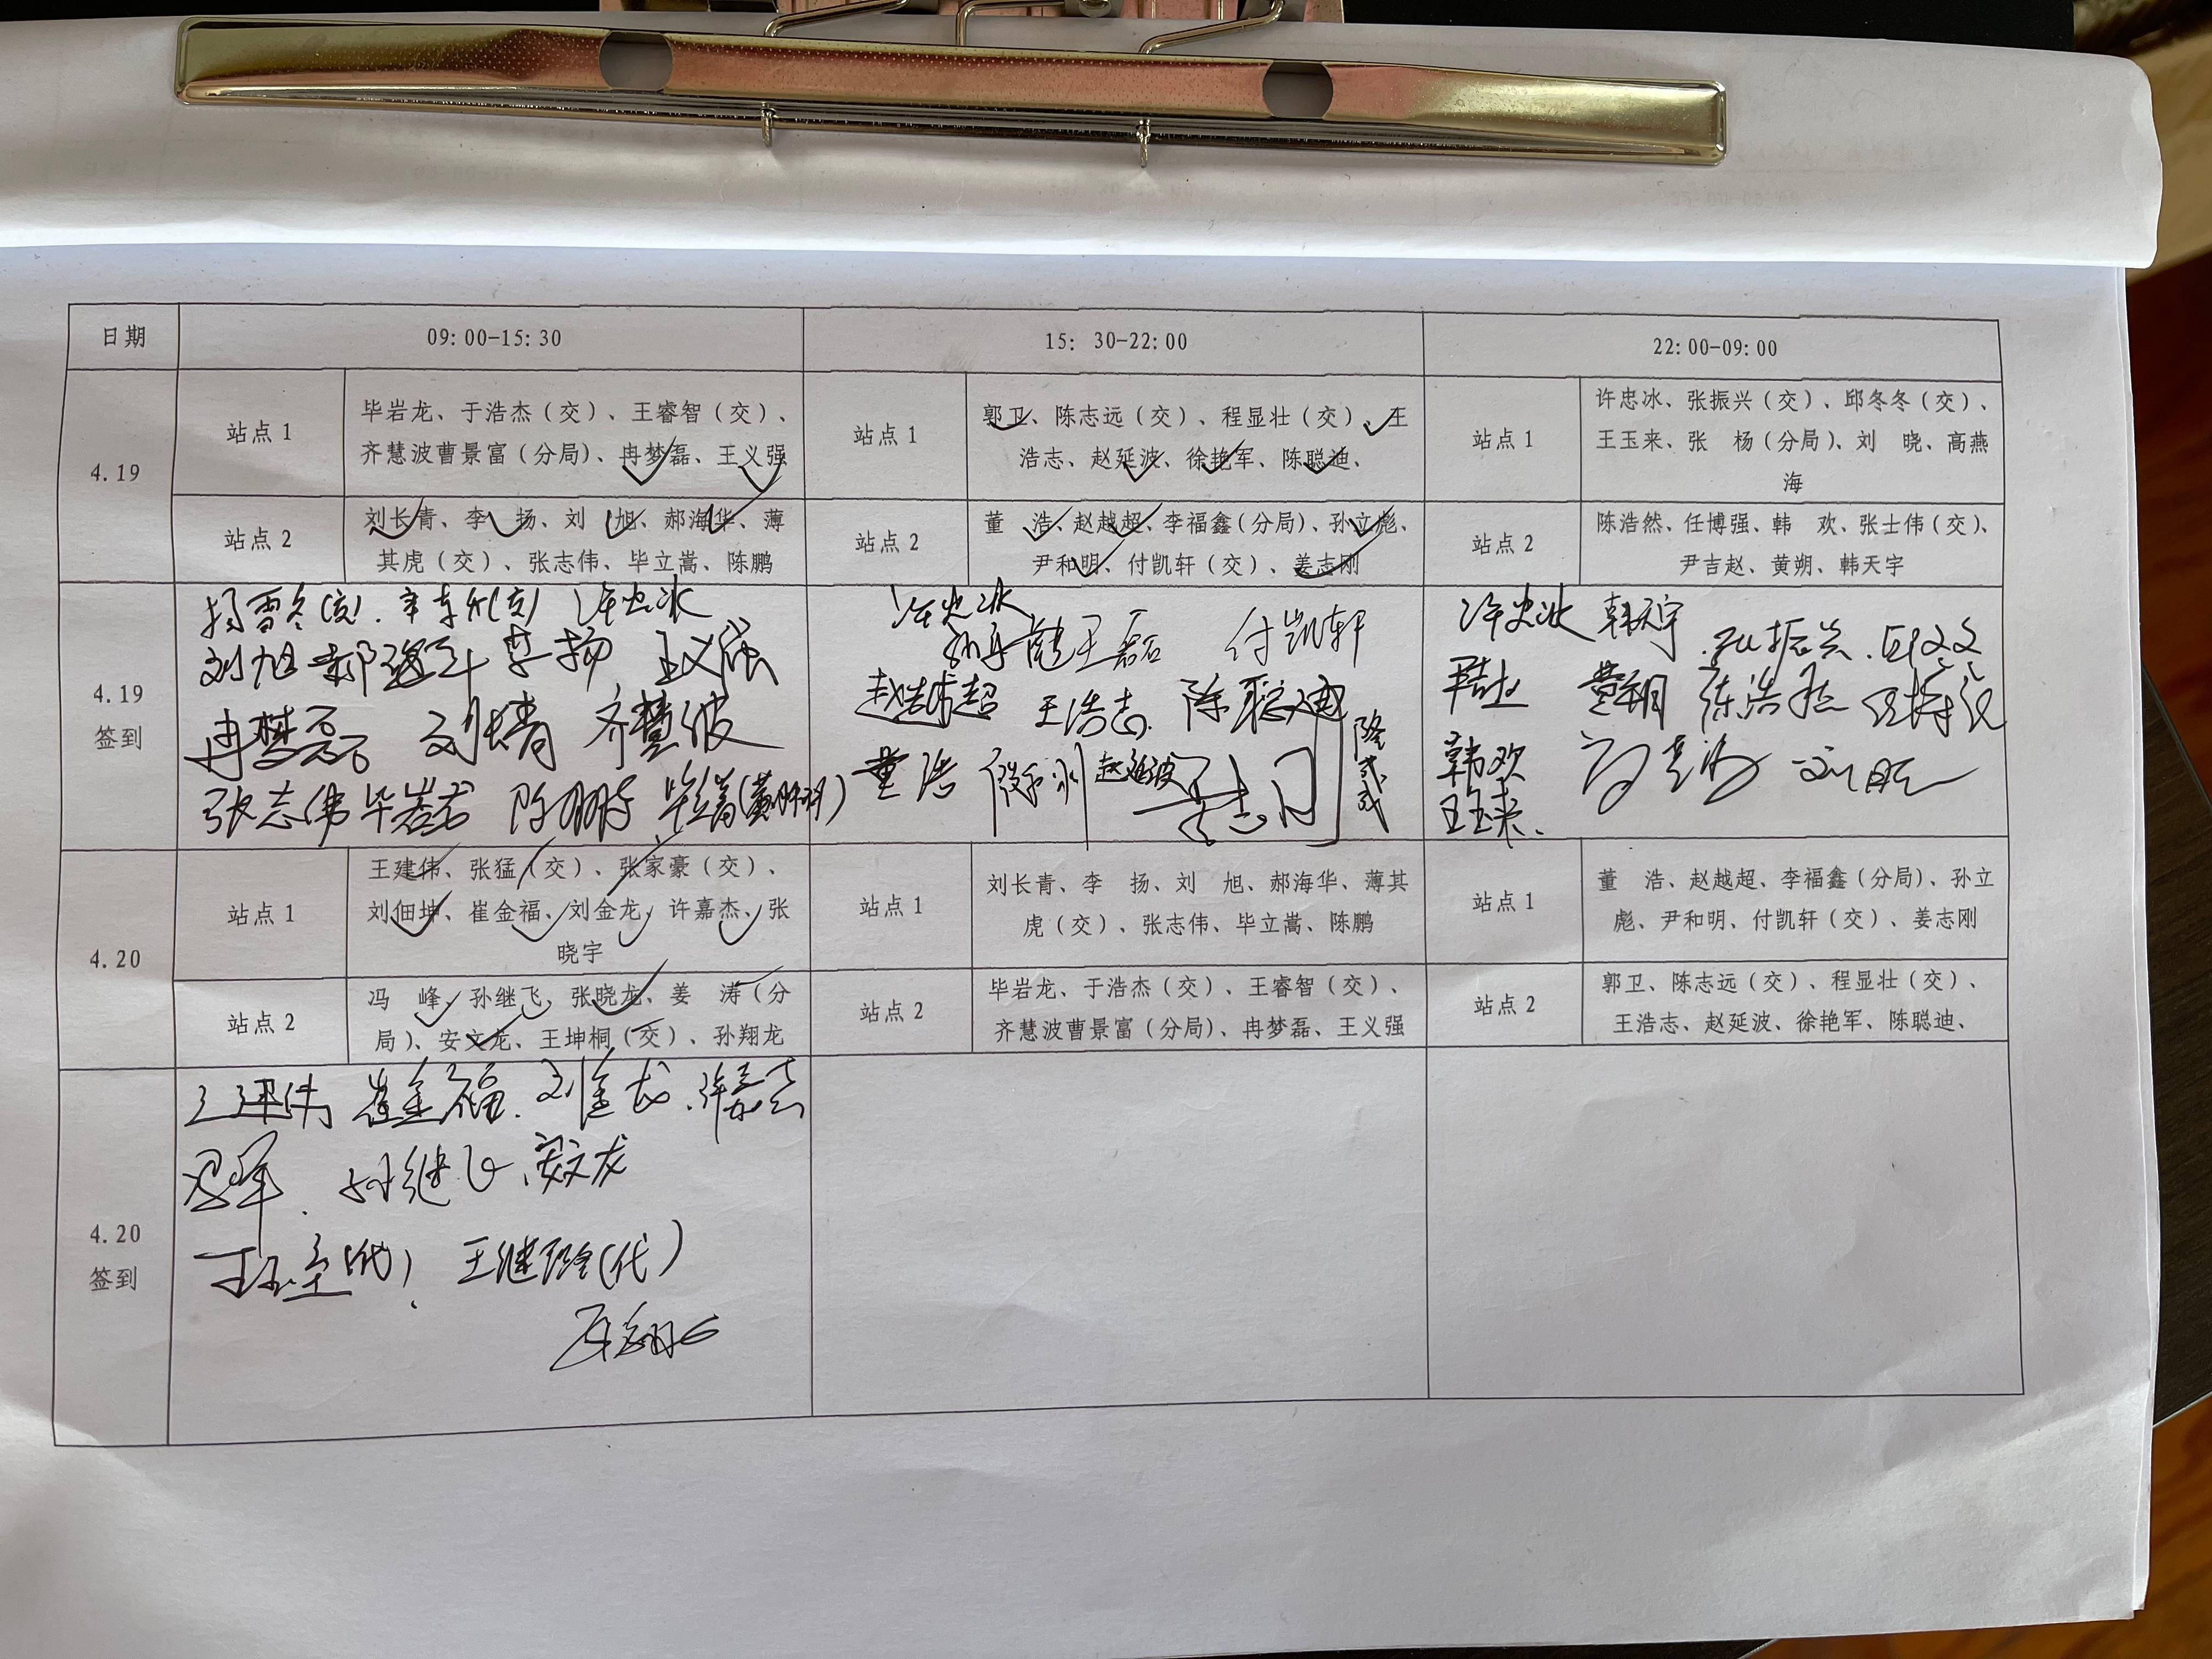 日期 09:00-15:30 15: 30-22:00 22:00-09:00
4.19
站点1
毕岩龙、于浩杰（交）、王睿智（交）、
齐慧波曹景富（分局）、冉梦磊、王义强
站点1
郭卫、陈志远（交）、程显壮（交）、王
浩志、赵延波、徐艳军、陈聪迪、
站点1
许忠冰、张振兴（交）、邱冬冬（交）、
王玉来、张 杨（分局）、刘 晓、高燕
海
站点2
刘长青、李 扬、刘 旭、郝海华、薄
其虎（交）、张志伟、毕立嵩、陈鹏
站点2
董 浩、赵越超、李福鑫（分局）、孙立彪、
尹和明、付凯轩（交）、姜志刚
站点2
陈浩然、任博强、韩 欢、张士伟（交）、
尹吉赵、黄朔、韩天宇
4.19
签到
许忠冰
刘旭 郝海华 李扬 王义强
冉梦磊 刘长青 齐慧波
张志伟 毕岩龙 陈鹏
许忠冰
王磊 付凯轩
赵越超 王浩志 陈聪迪
董浩 赵延波 姜志刚
许忠冰 韩天宇 张振兴
黄朔 陈浩然
韩欢 高燕海 刘晓
王玉来
4.20
站点1
王建伟、张猛（交）、张家豪（交）、
刘佃坤、崔金福、刘金龙、许嘉杰、张
晓宇
站点1
刘长青、李 扬、刘 旭、郝海华、薄其
虎（交）、张志伟、毕立嵩、陈鹏
站点1
董 浩、赵越超、李福鑫（分局）、孙立
彪、尹和明、付凯轩（交）、姜志刚
站点2
冯 峰、孙继飞、张晓龙、姜 涛（分
局）、安文龙、王坤桐（交）、孙翔龙
站点2
毕岩龙、于浩杰（交）、王睿智（交）、
齐慧波曹景富（分局）、冉梦磊、王义强
站点2
郭卫、陈志远（交）、程显壮（交）、
王浩志、赵延波、徐艳军、陈聪迪、
4.20
签到
王建伟 崔金福 刘金龙 许嘉杰
冯峰 孙继飞 安文龙
（代） （代）